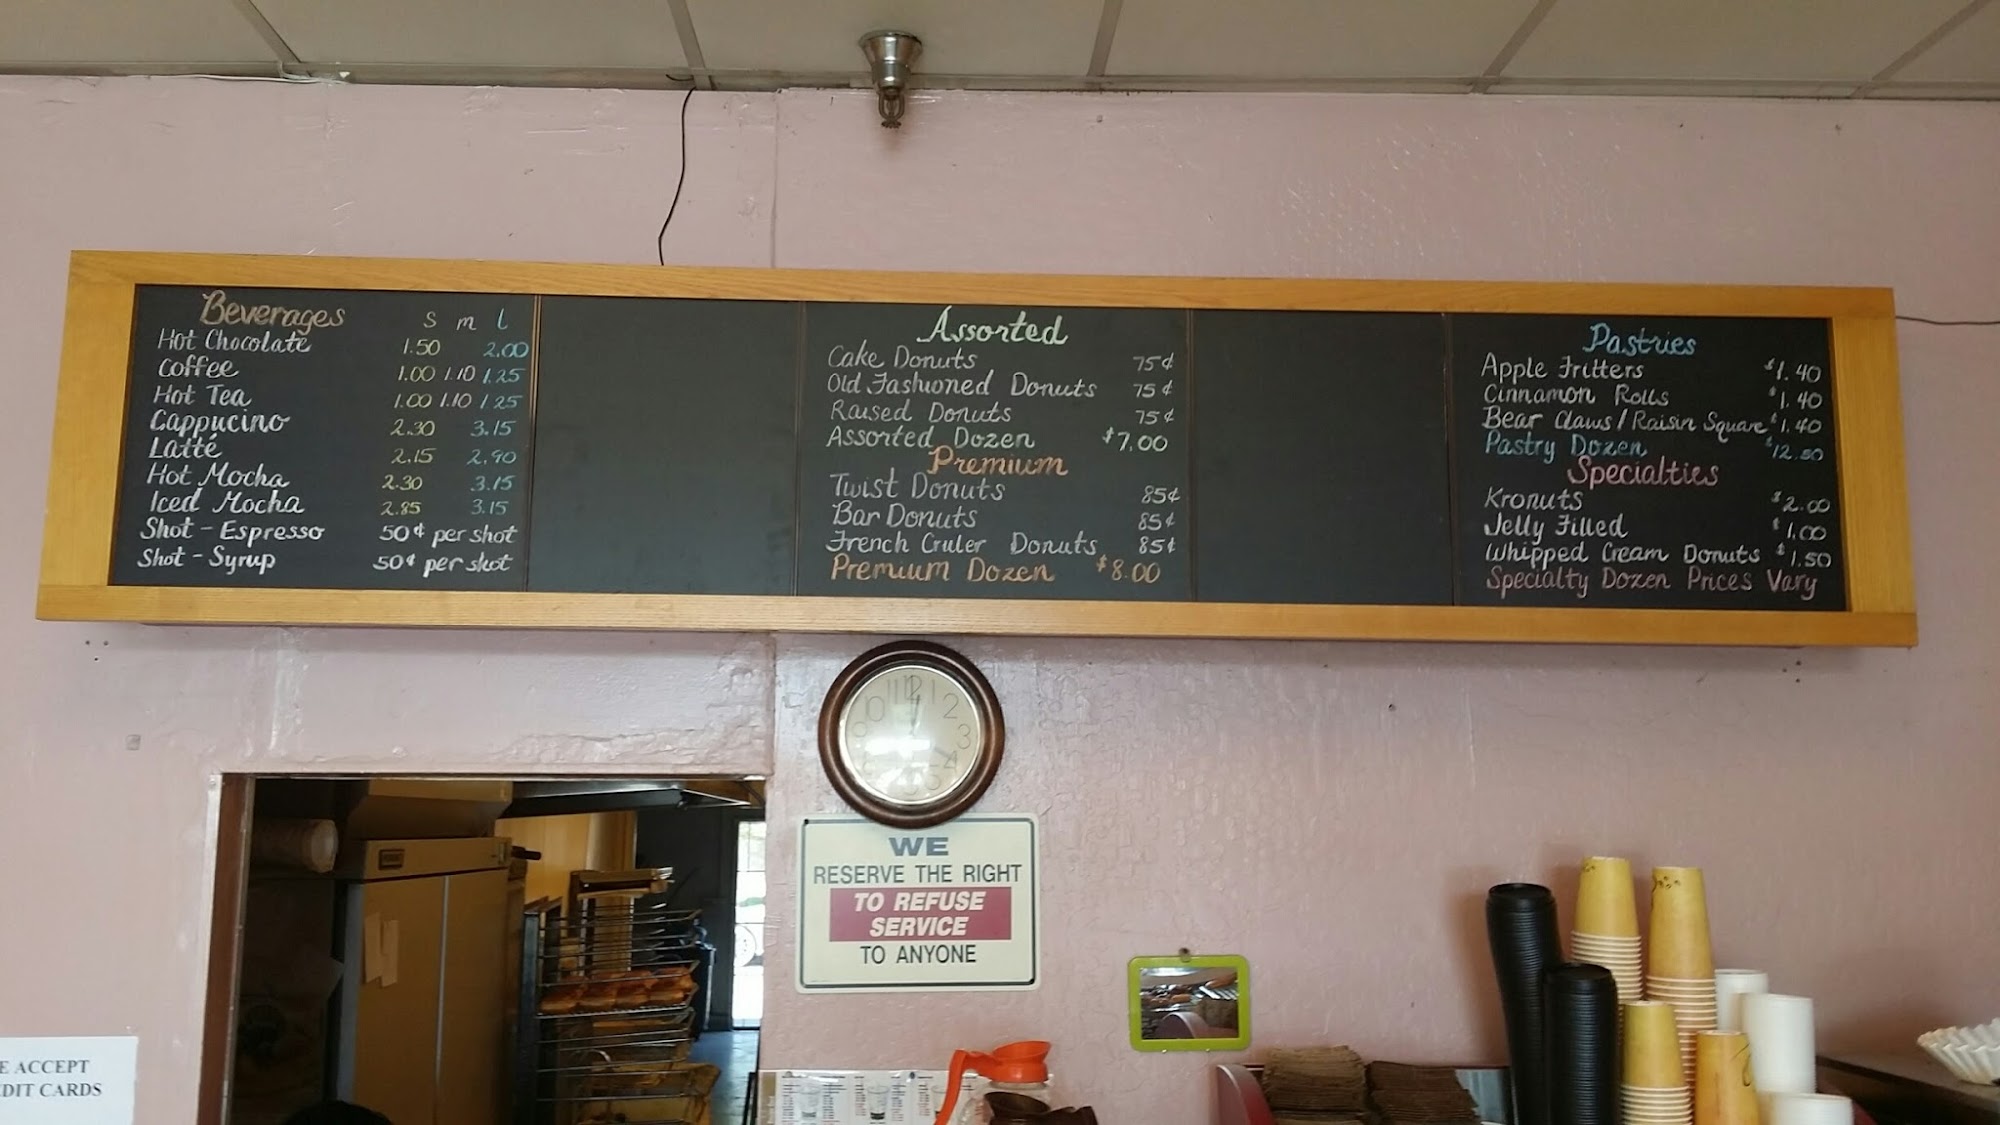 Beverages S m l
Hot Chocolate 1.50 2.00
Coffee 1.00 1.10 1.25
Hot Tea 1.00 1.10 1.25
Cappucino 2.30 3.15
Latté 2.15 2.90
Hot Mocha 2.30 3.15
Iced Mocha 2.85 3.15
Shot - Espresso 50¢ per shot
Shot - Syrup 50¢ per shot
Assorted
Cake Donuts 75¢
Old Fashioned Donuts 75¢
Raised Donuts 75¢
Assorted Dozen $7.00
Premium
Twist Donuts 85¢
Bar Donuts 85¢
French Cruler Donuts 85¢
Premium Dozen $8.00
Pastries
Apple Fritters $1.40
Cinnamon Rolls $1.40
Bear Claws/Raisin Square $1.40
Pastry Dozen $12.50
Specialties
Kronuts $2.00
Jelly Filled $1.00
Whipped Cream Donuts $1.50
Specialty Dozen Prices Vary
WE
RESERVE THE RIGHT
TO REFUSE
SERVICE
TO ANYONE
ACCEPT
CARDS